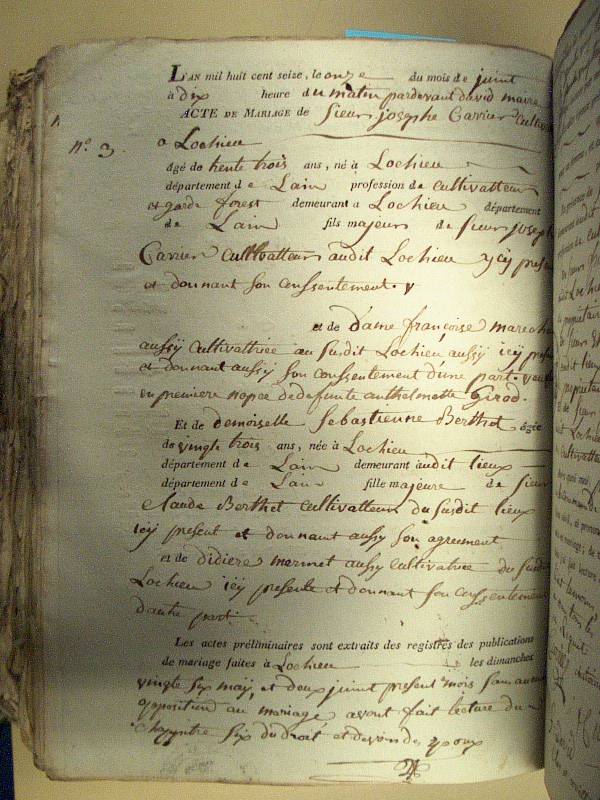 L'AN mil huit cent seize, le onze du mois de juint
à dix heure du matin pardevant david maire
ACTE DE MARIAGE de Sieur josephe Carrier Cultiv
n.o 3. a Lochieu
âgé de trente trois ans, né à Lochieu
département de Lain profession de cultivatteur
et garde forest demeurant a Lochieu département
de Lain fils majeur de Sieur joseph
Carrier Cultivatteur audit Lochieu ycy present
et donnant son conssentement.
et de Dame françoise marecha
aussÿ Cultivattrice au susdit Lochieu aussÿ icy present
et donnant aussÿ son conssentement dune part. veuf
en premiere nopce dedefunte anthelmette Girod.
Et de demoiselle Sebastienne Berthet âgée
de vingte trois ans, née à Lochieu
département de Lain demeurant audit lieux
département de Lain fille majeure de Sieur
Claude Berthet Cultivatteur du susdit lieux
icy present et donnant aussy son agreement
et de didiere mermet aussy Cultivatrice du susdit
Lochieu icy presente et donnant son conssentement
dautre part.
Les actes préliminaires sont extraits des registres des publications
de mariage faites à Lochieu les dimanches
vingte six maÿ, et deux juint present mois sans aucune
opposition au mariage avont fait lecture du
Chapyttre six du droit et devoir des Epoux